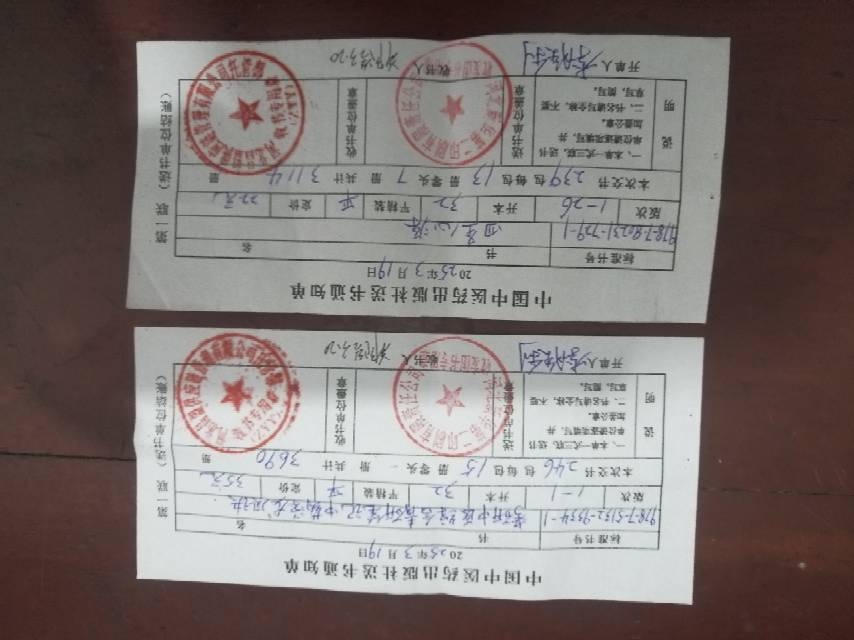 中国中医药出版社送书通知单
2025年3月19日
标准书号 书 名
978-7-5132-9334-1
版次 1-1 开本 32 平精装 平 定价 35元
本次交书 246 包 每包 15 册 零头 - 册 共计 3690 册
说明
一、本单一式三联，送书
单位请逐项填写，并
加盖公章。
二、书名请写全称，不要
草写、简写。
送书单位盖章
收书单位盖章
开单人 收书人 3.20
第一联（送书单位结账）
中国中医药出版社送书通知单
2025年3月19日
标准书号 书 名
978-7-80231-729-1 四圣心源
版次 1-26 开本 32 平精装 平 定价 22元
本次交书 239 包 每包 13 册 零头 7 册 共计 3114 册
说明
一、本单一式三联，送书
单位请逐项填写，并
加盖公章。
二、书名请写全称，不要
草写、简写。
送书单位盖章
收书单位盖章
开单人 收书人 3.20
第一联（送书单位结账）